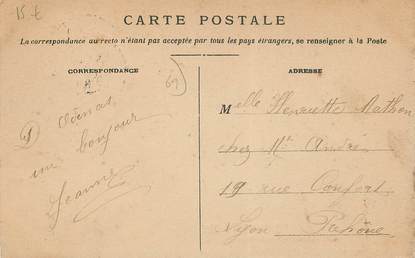 15 €
CARTE POSTALE
La correspondance au recto n'étant pas acceptée par tous les pays étrangers, se renseigner à la Poste
CORRESPONDANCE
69
1
Odenas
un bonjour
Jeanne
ADRESSE
Melle Henriette Mathon
chez Mr André
19 rue Confort
Lyon Rhône